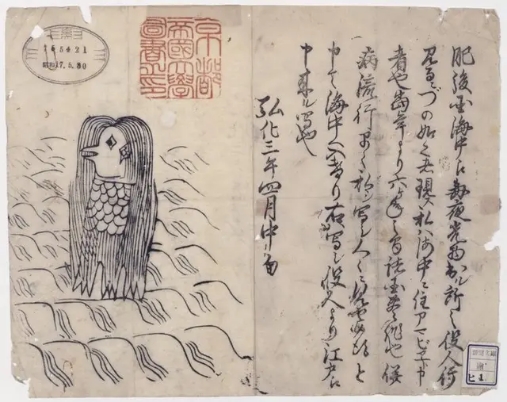 肥後国海中江毎夜光物出ル所之役人行
見るニづの如之者現ス私ハ海中ニ住アマビヱト申
者也當年より六ヶ年之間諸国豊作也併
病流行早々私ヲ写シ人々ニ見セ候得と
申て海中へ入けり右写シ役人より江戸江
申来ル写也
弘化三年四月中旬
京都
帝國大學
圖書之印